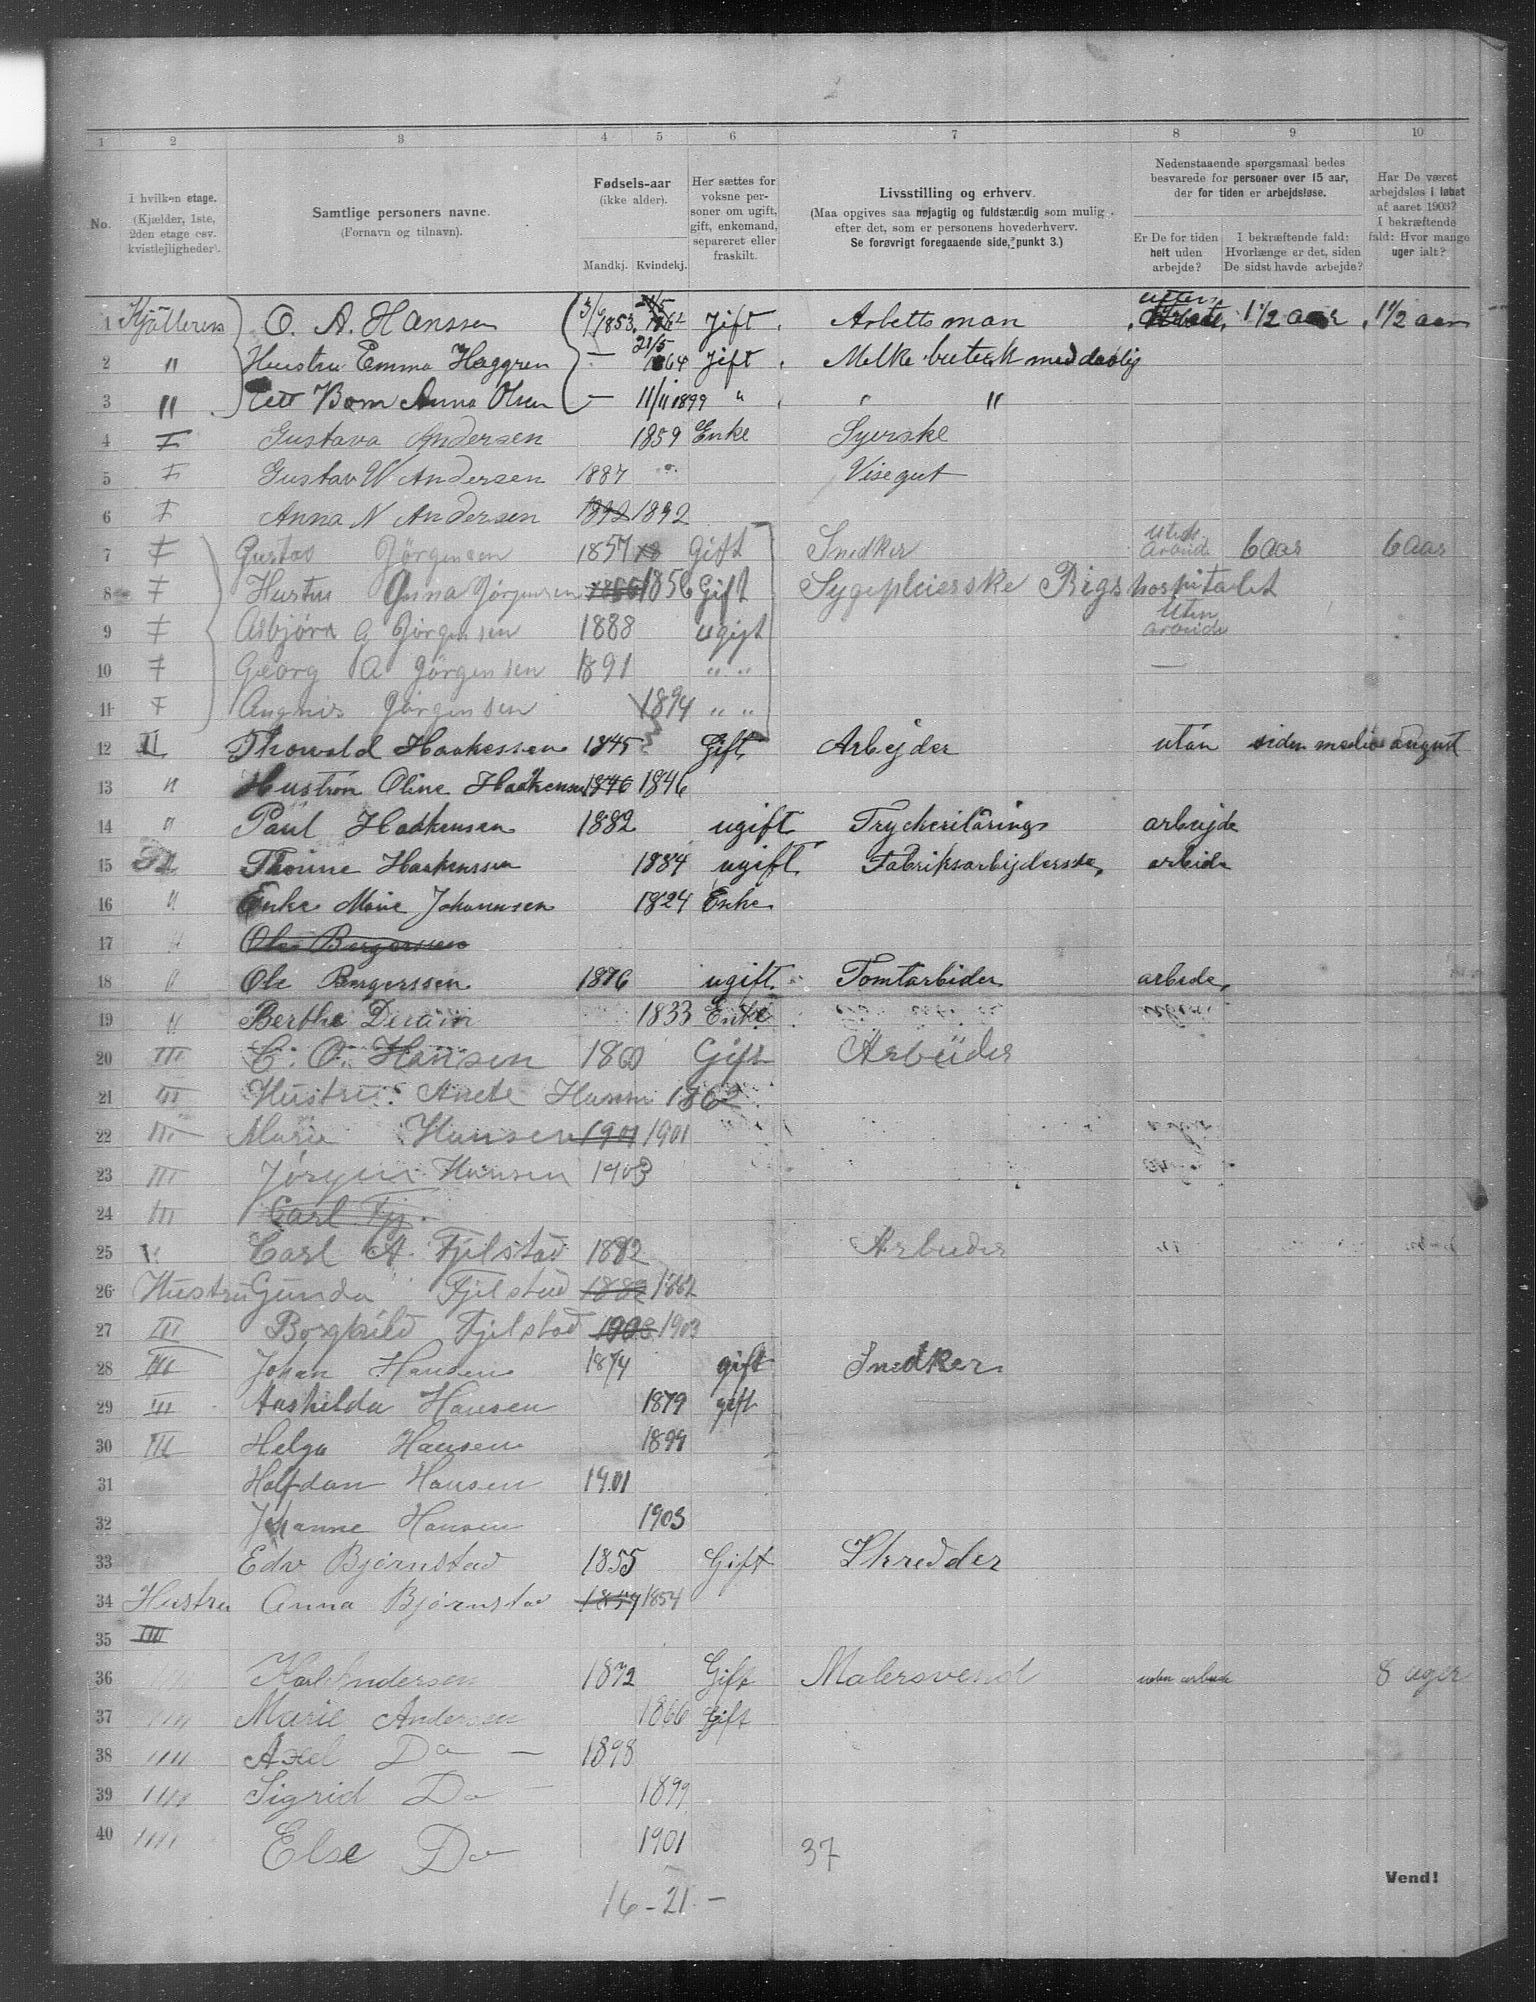 1 2 3 4 5 6 7 8 9 10
No.
I hvilken etage.
(Kjælder, 1ste,
2den etage osv.
kvistlejligheder).
Samtlige personers navne.
(Fornavn og tilnavn).
Fødsels-aar
(ikke alder).
Mandkj. Kvindekj.
Her sættes for
voksne per-
soner om ugift,
gift, enkemand,
separeret eller
fraskilt.
Livsstilling og erhverv.
(Maa opgives saa nøjagtig og fuldstændig som mulig
efter det, som er personens hovederhverv.
Se forøvrigt foregaaende side, punkt 3.)
Nedenstaaende spørgsmaal bedes
besvarede for personer over 15 aar,
der for tiden er arbejdsløse.
Er De for tiden
helt uden
arbejde?
I bekræftende fald:
Hvorlænge er det, siden
De sidst havde arbejde?
Har De været
arbejdsløs i løbet
af aaret 1903?
I bekræftende
fald: Hvor mange
uger ialt?
1 O. A. Hanssen 3/6 1853 Jift Arbettsman 1 1/2 aar 1 1/2 aar
2 " Hustru Emma Haggren 21/5 1864 Jift Melke butek med daglig
3 " ett Barn Anna Olsen 11/11 1899 " " "
4 I Gustava Andersen 1859 Enke Syerske
5 I Gustav W Andersen 1887 Visegut
6 I Anna N Andersen 1892 1892
7 I Gustav Jørgensen 1857 Gift Snedker 6 Aar 6 Aar
8 I Hustru Anna Jørgensen 1856 1856 Gift Sygepleierske Rigshospitalet
9 I Asbjørn G Jørgensen 1888 ugift Uten arbeide
10 I Georg A Jørgensen 1891 " " —
11 I Angnis Jørgensen 1894 " "
12 II Thorvald Haakenssen 1845 Gift Arbejder utan siden medio august
13 " Hustrun Oline Haakensen 1846 1846
14 " Paul Haakensen 1882 ugift Tryckerilärings arbejde
15 II Thorine Haakenssen 1884 ugift Fabriksarbijderske arbide
16 " Enke Marie Johannsen 1824 Enke
17 " Ole Bergerssen
18 " Ole Bergerssen 1876 ugift Tomtarbider arbede
19 " Berthe 1833 Enke
20 III C. O. Hansen 1860 Gift Arbeider
21 III Hustru Anete Hansen 1862
22 III Marie Hansen 1901 1901
23 III Jørgen Hansen 1903
24 III Carl Fj.
25 " Carl A. Fjelstad 1882 Arbeider
26 Hustru Gunda Fjelstad 1882 1882
27 III Borghild Fjelstad 1903 1903
28 III Johan Hansen 1874 gift Snedker
29 III Aashilda Hansen 1879 gift
30 III Helga Hansen 1899
31 Halfdan Hansen 1901
32 Johanne Hansen 1903
33 Edv Bjørnstad 1855 Gift Skredder
34 Hustru Anna Bjørnstad 1854 1854
35 III
36 IIII Karl Andersen 1872 Gift Malersvend uden arbeide 8 uger
37 IIII Marie Andersen 1866 Gift
38 IIII Axel Do — 1898
39 IIII Sigrid Do — 1899
40 IIII Else Do 1901 37
Vend!
16 - 21 -